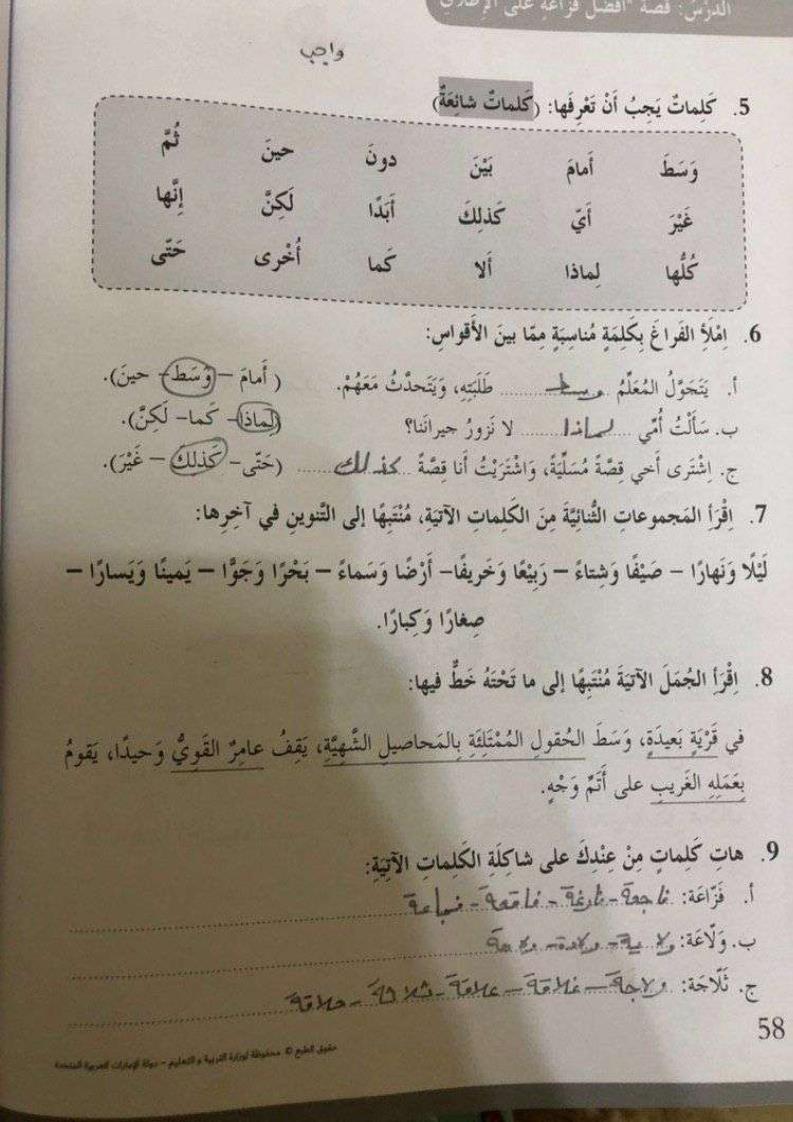 الدَّرْسُ: قصة "أفضل فزاعة على الإطلاق
واجب
5. كَلِماتٌ يَجِبُ أَنْ تَعْرِفَها: (كَلماتٌ شائِعَةٌ)
وَسَطَ أَمامَ بَيْنَ دونَ حينَ ثُمَّ
غَيْرَ أَيّ كَذلِكَ أَبَدًا لَكِنَّ إِنَّها
كُلُّها لِماذا أَلا كَما أُخْرى حَتّى
6. اِمْلَأِ الفَراغَ بِكَلِمَةٍ مُناسِبَةٍ مِمّا بينَ الأَقْواسِ:
أ. يَتَجَوَّلُ المُعَلِّمُ ...وسط... طَلَبَتِهِ، وَيَتَحدَّثُ مَعَهُمْ. ( أَمامَ – وَسَط – حينَ).
ب. سَأَلْتُ أُمّي ...لماذا... لا نَزورُ جيرانَنا؟ (لِماذا– كَما– لَكِنَّ).
ج. اِشْتَرى أَخي قِصَّةً مُسَلِّيَةً، وَاشْتَرَيْتُ أَنا قِصَّةً ...كذلك... (حَتّى– كَذلكَ – غَيْرَ).
7. اِقْرَأِ المَجموعاتِ الثُّنائِيَّةَ مِنَ الكَلِماتِ الآتيَةِ، مُنْتَبِهًا إلى التَّنوينِ في آخِرِها:
لَيْلًا وَنَهارًا – صَيْفًا وَشِتاءً – رَبيْعًا وَخَريفًا– أَرْضًا وَسَماءً – بَحْرًا وَجَوًّا – يَمينًا وَيَسارًا –
صِغارًا وَكِبارًا.
8. اِقْرَأِ الجُمَلَ الآتيَةَ مُنْتَبِهًا إلى ما تَحْتَهُ خَطٌّ فيها:
في قَرْيَةٍ بَعيدَةٍ، وَسَطَ الحُقولِ المُمْتَلِئَةِ بِالمَحاصيلِ الشَّهِيَّةِ، يَقِفُ عامِرٌ القَوِيُّ وَحيدًا، يَقومُ
بِعَمَلِهِ الغَريبِ على أَتَمِّ وَجْهٍ.
9. هاتِ كَلِماتٍ مِنْ عِنْدِكَ على شاكِلَةِ الكَلِماتِ الآتِيَةِ:
أ. فَزّاعَة: ناجعة –
ب. وَلّاعَة: ولاية – ولادة –
ج. ثَلّاجَة: ولاجة – غلاقة – علاقة – ثلاثة – حلاقة
58
حقوق الطبع © محفوظة لوزارة التربية والتعليم – دولة الإمارات العربية المتحدة